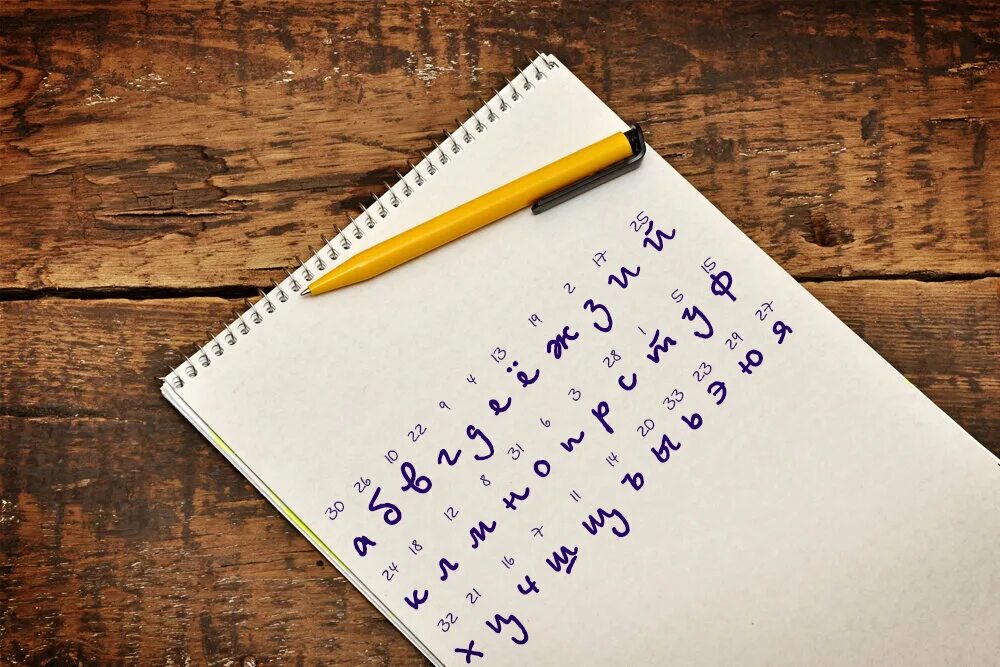 30 26 10 22 9 4 13 19 2 17 25
а б в г д е ё ж з и й
24 18 12 8 31 6 3 28 1 5 15
к л м н о п р с т у ф
32 21 16 7 11 14 20 33 23 29 27
х ц ч ш щ ъ ы ь э ю я